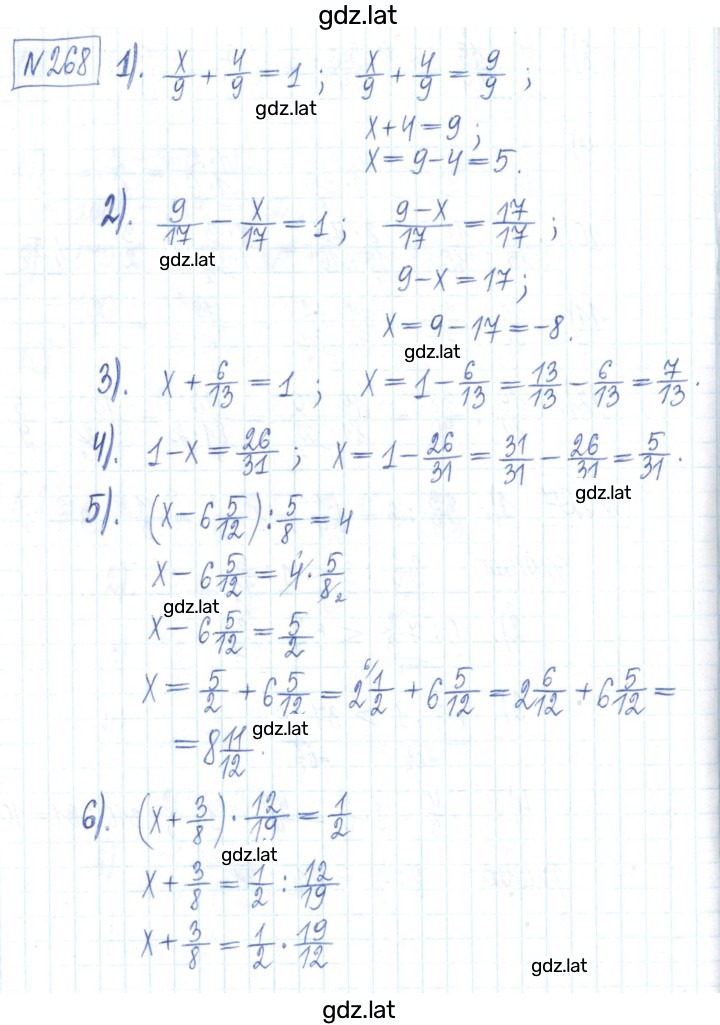 gdz.lat
№268 1). x/9 + 4/9 = 1 ; x/9 + 4/9 = 9/9 ;
gdz.lat
x+4=9 ;
x=9-4=5.
2). 9/17 - x/17 = 1 ; (9-x)/17 = 17/17 ;
gdz.lat
9-x=17 ;
x=9-17=-8.
gdz.lat
3). x + 6/13 = 1 ; x = 1 - 6/13 = 13/13 - 6/13 = 7/13.
4). 1-x = 26/31 ; x = 1 - 26/31 = 31/31 - 26/31 = 5/31.
gdz.lat
5). (x - 6 5/12) : 5/8 = 4
x - 6 5/12 = 4 · 5/8 1 2
gdz.lat
x - 6 5/12 = 5/2
x = 5/2 + 6 5/12 = 2 1/2 6/ + 6 5/12 = 2 6/12 + 6 5/12 =
gdz.lat
= 8 11/12.
6). (x + 3/8) · 12/19 = 1/2
gdz.lat
x + 3/8 = 1/2 : 12/19
x + 3/8 = 1/2 · 19/12
gdz.lat
gdz.lat